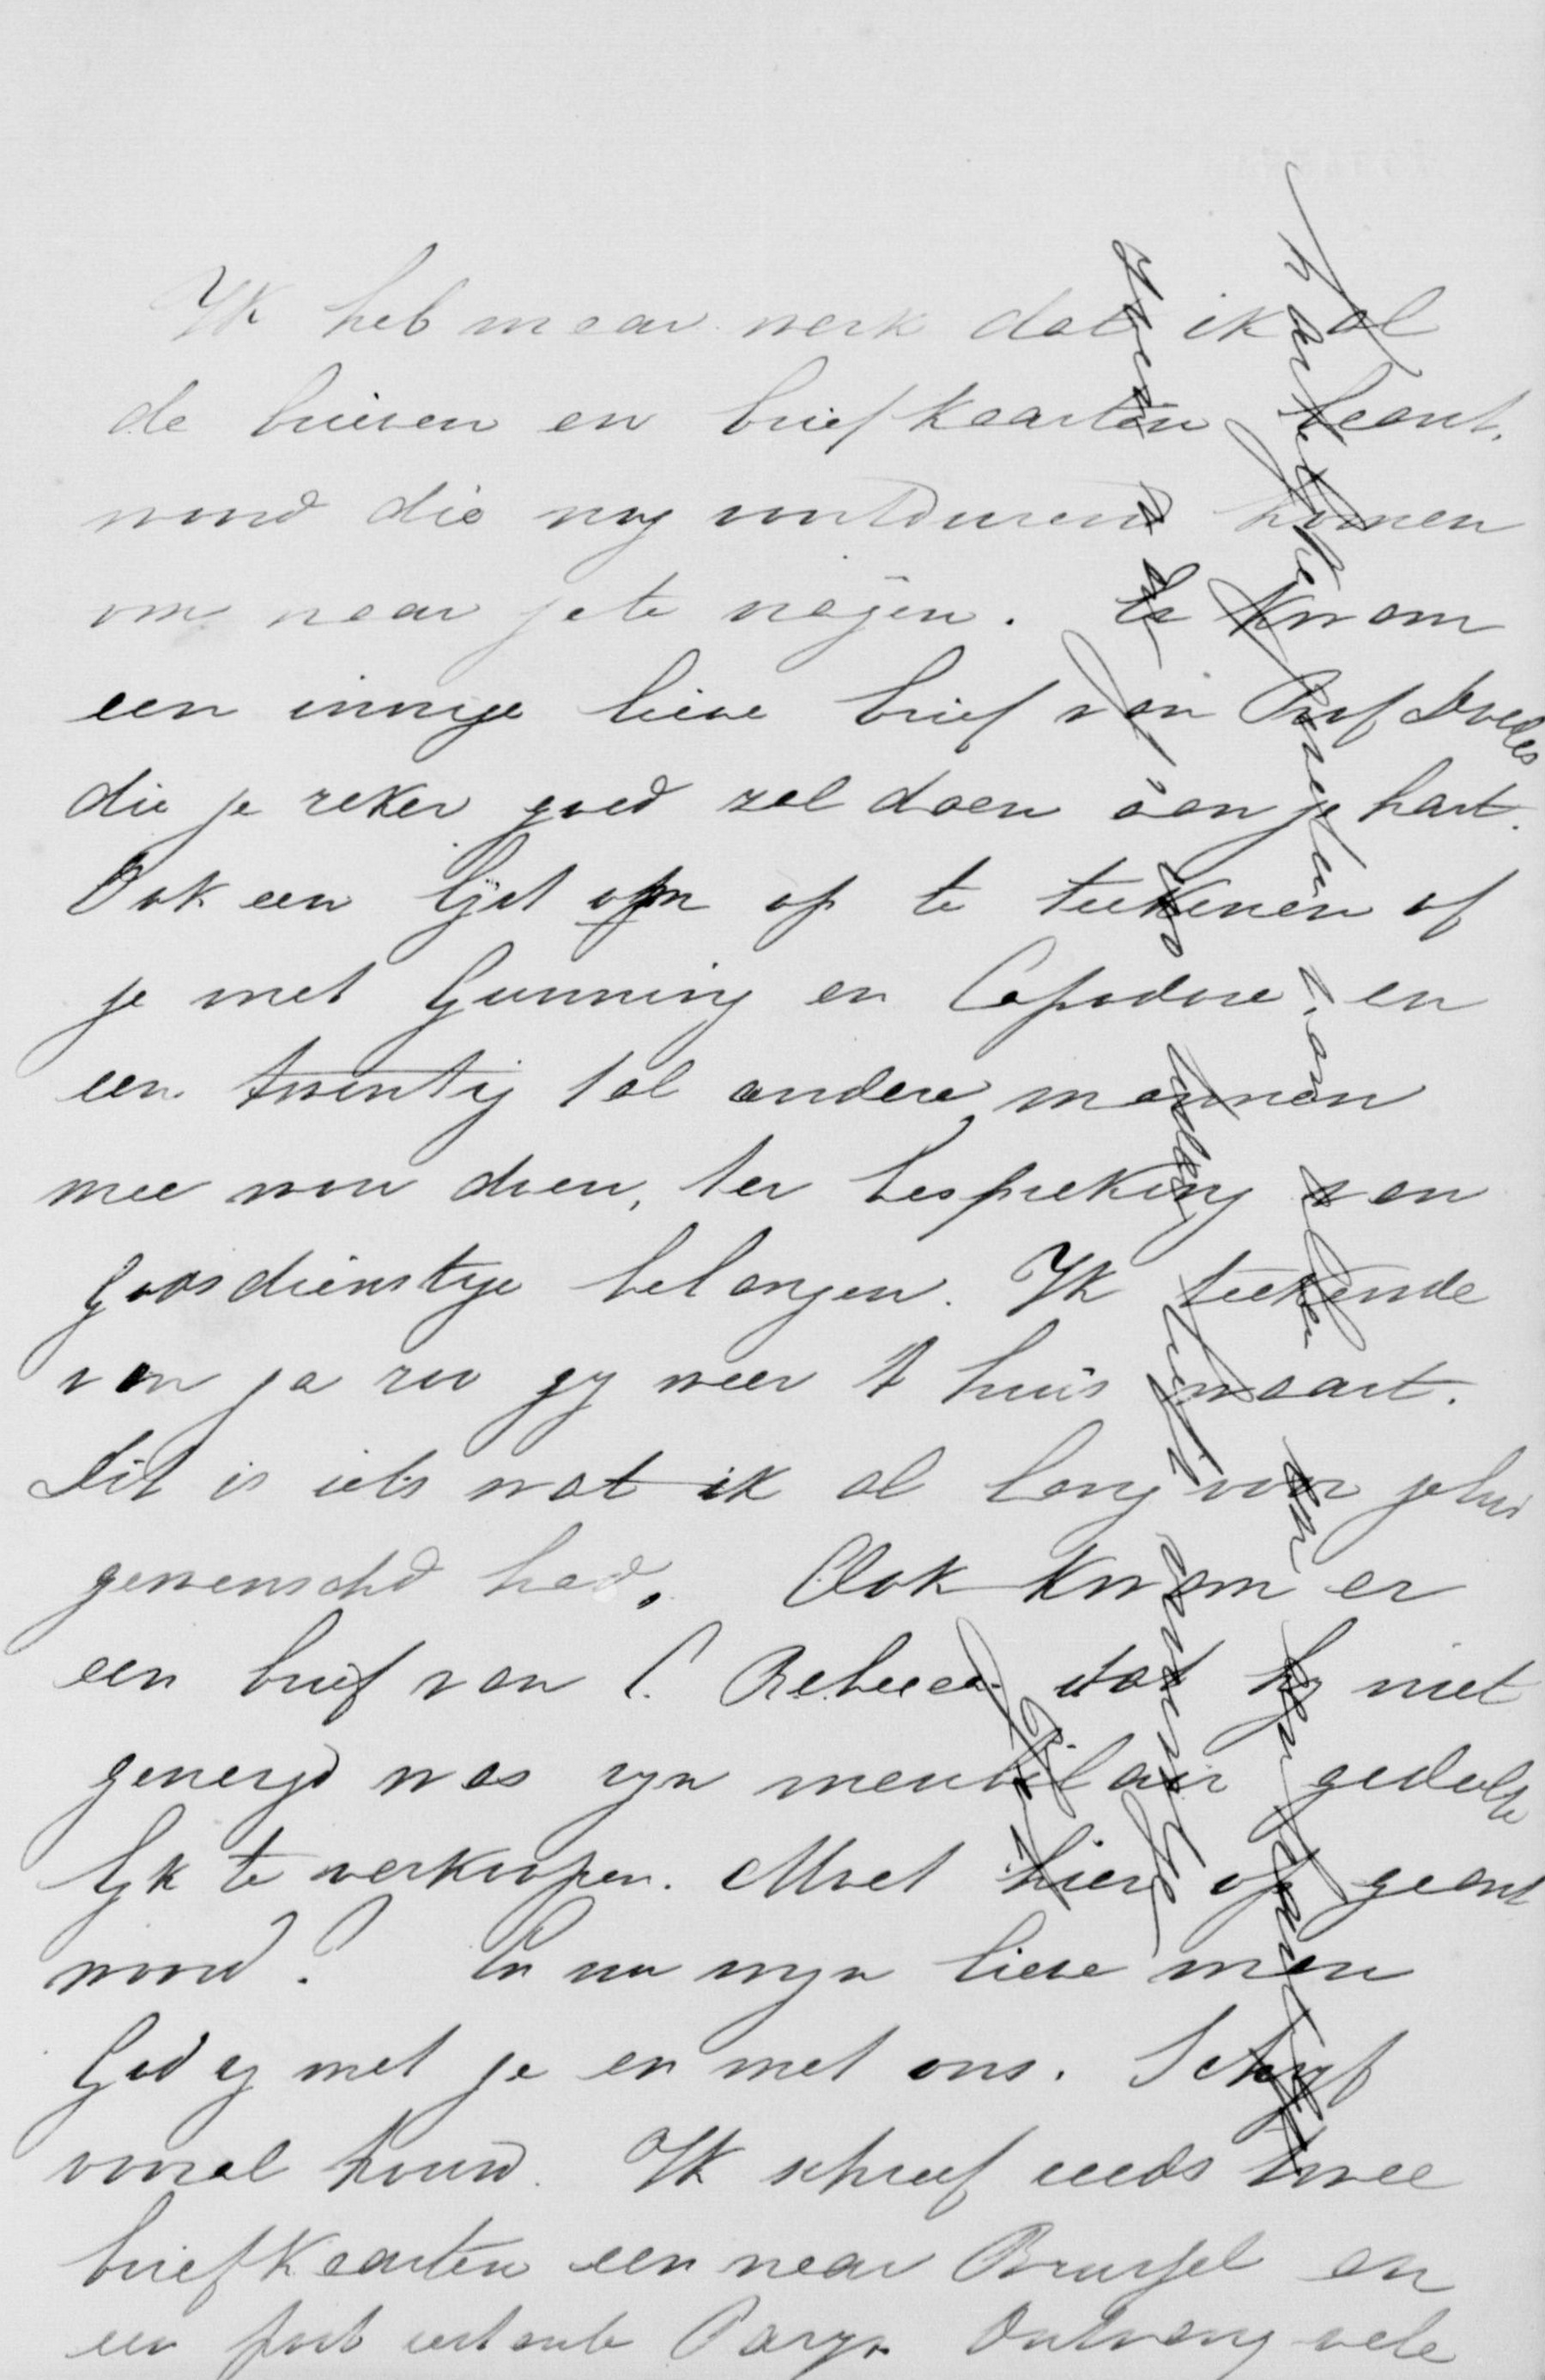 Ik heb maar werk dat ik al
de brieven en briefkaarten beant,
woord die nog voortdurend komen
om naar je te vragen. Er kwam
een innige lieve brief van Prof Doedes
die je zeker goed zal doen aan je hart.
Ook een lijst om op te teekenen of
je met Gunning en Capadose en
een twintig tal andere mannen
mee wou doen, ter bespreking van
Godsdienstige belangen. Ik teekende
van ja zoo gy weer t huis waart.
Dit is iets wat ik al lang voor je
gewenscht had. Ook kwam er
een brief van C. Rebecca dat hy niet
genegd was zyn meubilair gedeelte
lyk te verkoopen. Moet hier op geant
woord? En nu myn lieve man
God zy met je en met ons. Schryf
vooral houd. Ik schreef reeds twee
briefkaarten een naar Brussel en
een post restante Parys Ontvang vele
hartelyke groeten van allen en